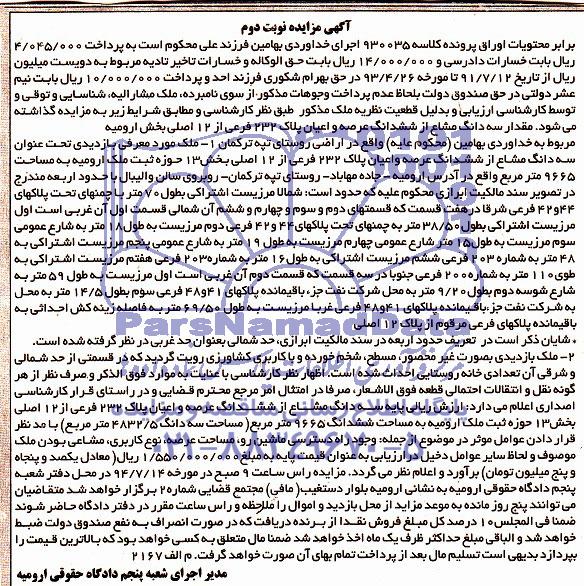 آگهی مزایده نوبت دوم
برابر محتویات اوراق پرونده کلاسه ۹۳۰۰۳۵ اجرای خداوردی بهامین فرزند علی محکوم است به پرداخت ۴/۰۴۵/۰۰۰
ریال بابت خسارات دادرسی و ۱۴/۰۰۰/۰۰۰ ریال بابت حق الوکاله و خسارات تاخیر تادیه مربوط به دویست میلیون
ریال از تاریخ ۹۱/۷/۱۲ تا مورخه ۹۳/۴/۲۶ در حق بهرام شکوری فرزند احد و پرداخت ۱۰/۰۰۰/۰۰۰ ریال بابت نیم
عشر دولتی در حق صندوق دولت بلحاظ عدم پرداخت وجوهات مذکور از سوی نامبرده، ملک مشارالیه، شناسایی و توقی و
توسط کارشناسی ارزیابی و بدلیل قطعیت نظریه ملک مذکور طبق نظر کارشناسی و مطابق شرایط زیر به مزایده گذاشته
می شود. مقدار سه دانگ مشاع از ششدانگ عرصه و اعیان پلاک ۲۳۲ فرعی از ۱۲ اصلی بخش ارومیه
مربوط به خداوردی بهامین (محکوم علیه) واقع در اراضی روستای تپه ترکمان ۱- ملک مورد معرفی بازدیدی تحت عنوان
سه دانگ مشاع از ششدانگ عرصه و اعیان پلاک ۲۳۲ فرعی از ۱۲ اصلی بخش ۱۳ حوزه ثبت ملک ارومیه به مساحت
۹۶۶۵ متر مربع واقع در آدرس ارومیه- جاده مهاباد- روستای تپه ترکمان- روبروی سالن والیبال با حدود اربعه مندرج
در تصویر سند مالکیت ابرازی محکوم علیه که حدود است: شمالا مرزیست اشتراکی بطول ۷۰ متر با چمنهای تحت پلاکهای
۴۴و۴۲ فرعی شرقا در هفت قسمت که قسمتهای دوم و سوم و چهارم و ششم آن شمالی قسمت اول آن غربی است اول
مرزیست اشتراکی بطول ۳۸/۵۰ متر به چمنهای تحت پلاکهای ۴۴و۴۲ فرعی دوم مرزیست به طول ۱۸ متر به شارع عمومی
سوم مرزیست به طول ۱۵ متر شارع عمومی چهارم مرزیست به طول ۱۹ متر به شارع عمومی پنجم مرزیست اشتراکی به
۴۸ متر به شماره ۲۰۳ فرعی ششم مرزیست اشتراکی به طول ۱۶ متر به شماره ۲۰۳ فرعی هفتم مرزیست اشتراکی به
طوی ۱۱۰ متر به شماره ۲۰۰ فرعی جنوبا در سه قسمت که قسمت دوم آن غربی است اول مرزیست به طول ۵۹ متر به
شارع شوسه دوم بطول ۹/۲۰ متر به محل شرکت نفت جزء باقیمانده پلاکهای ۴۱و۴۸ فرعی سوم بطول ۱۴/۵ متر به محل
به شرکت نفت جزء باقیمانده پلاکهای ۴۱و۴۸ فرعی غربا مرزیست به طول ۶۹/۵۰ متر به فاصله زینه کش احداثی به
باقیمانده پلاکهای فرعی مرقوم از پلاک ۱۲ اصلی
، شایان ذکر است در تعریف حدود اربعه در سند مالکیت ابرازی، حد شمالی بعنوان حد غربی در نظر گرفته شده است.
۲- ملک بازدیدی بصورت غیر محصور، مسطح، شخم خورده و با کاربری کشاورزی رویت گردید که در قسمتی از حد شمالی
و شرقی آن تعدادی خانه روستایی احداث شده است. اظهار نظر کارشناسی با عنایت به موارد فوق الذکر و صرف نظر از هر
گونه نقل و انتقالات احتمالی قطعه فوق الاشعار، صرفا در امتثال امر مرجع محترم قضایی و در راستای قرار کارشناسی
اصداری اعلام می دارد: ارزش ریالی پایه سه دانگ مشاع از ششدانگ عرصه و اعیان پلاک ۲۳۲ فرعی از ۱۲ اصلی
بخش ۱۳ حوزه ثبت ملک ارومیه به مساحت ششدانگ ۹۶۶۵ متر مربع (مساحت سه دانگ ۴۸۳۲/۵ متر مربع) با مد نظر
قرار دادن عوامل موثر در موضوع ازجمله: وجود راه دسترسی ماشین رو، مساحت عرصه، نوع کاربری، مشاعی بودن ملک
موصوف و لحاظ سایر عوامل دخیل در ارزیابی به عنوان قیمت پایه به مبلغ ۱/۵۵۰/۰۰۰/۰۰۰ ریال( معادل یکصد و پنجاه
و پنج میلیون تومان) برآورد و اعلام نظر می گردد. مزایده راس ساعت ۹ صبح در مورخه ۹۴/۷/۱۴ در محل دفتر شعبه
پنجم دادگاه حقوقی ارومیه به نشانی ارومیه بلوار دستغیب( مافی) مجتمع قضایی شماره ۲ برگزار خواهد شد متقاضیان
می توانند پنج روز مانده به موعد مزاید از محل بازدید و اموال را ملاحظه و راس ساعت مقرر در دفتر دادگاه حاضر شوند
ضمنا فی المجلس ۱۰ درصد کل مبلغ فروش نقدا از برنده دریافت که در صورت انصراف به نفع صندوق دولت ضبط
خواهد شد و الباقی مبلغ حداکثر ظرف یک ماه اخذ خواهد شد ضمنا مال متعلق به کسی خواهد بود که بالاترین قیمت را
بپردازد بدیهی است تسلیم مال بعد از پرداخت تمام بهای آن صورت خواهد گرفت. م الف ۲۱۶۷
مدیر اجرای شعبه پنجم دادگاه حقوقی ارومیه
ParsNamadData
۰۲۱-۸۸۳۴۹۶۷۰-۵